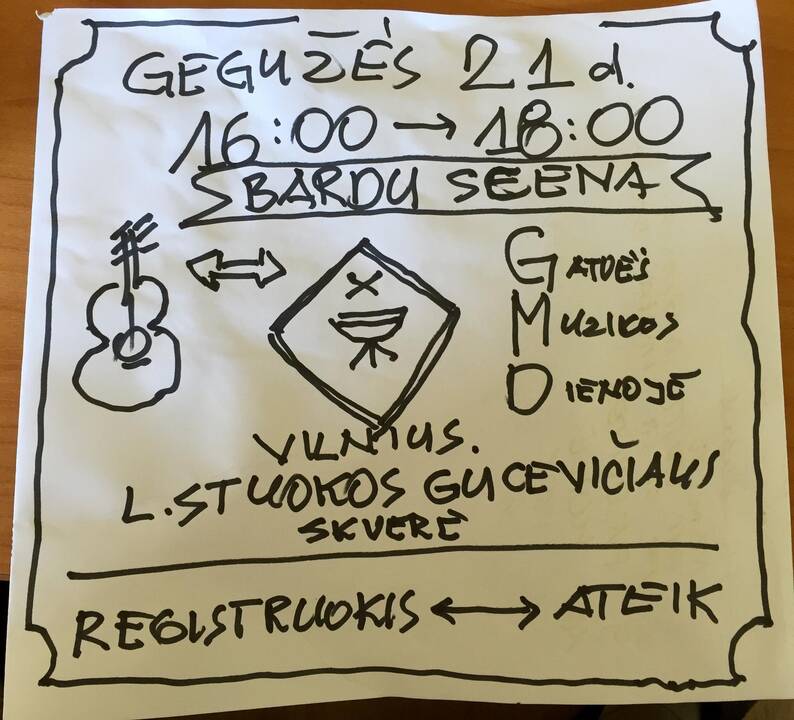 GEGUŽĖS 21 d.
16:00 → 18:00
BARDU SEENA
GATVĖS
MUZIKOS
DIENOJE
VILNIUS.
L.STUOKOS GUCEVIČIAUS
SKVERE
REGISTRUOKIS ↔ ATEIK